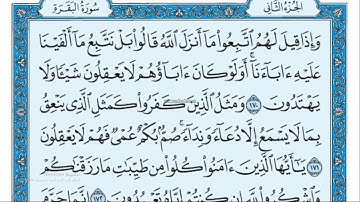 الجزء الثاني سورة البقرة
وَإِذَا قِيلَ لَهُمُ ٱتَّبِعُوا۟ مَآ أَنزَلَ ٱللَّهُ قَالُوا۟ بَلْ نَتَّبِعُ مَآ أَلْفَيْنَا
عَلَيْهِ ءَابَآءَنَآ أَوَلَوْ كَانَ ءَابَآؤُهُمْ لَا يَعْقِلُونَ شَيْـًٔا وَلَا
يَهْتَدُونَ ١٧٠ وَمَثَلُ ٱلَّذِينَ كَفَرُوا۟ كَمَثَلِ ٱلَّذِى يَنْعِقُ
بِمَا لَا يَسْمَعُ إِلَّا دُعَآءً وَنِدَآءً صُمٌّۢ بُكْمٌ عُمْىٌ فَهُمْ لَا يَعْقِلُونَ
١٧١ يَـٰٓأَيُّهَا ٱلَّذِينَ ءَامَنُوا۟ كُلُوا۟ مِن طَيِّبَـٰتِ مَا رَزَقْنَـٰكُمْ
وَٱشْكُرُوا۟ لِلَّهِ إِن كُنتُمْ إِيَّاهُ تَعْبُدُونَ ١٧٢ إِنَّمَا حَرَّمَ